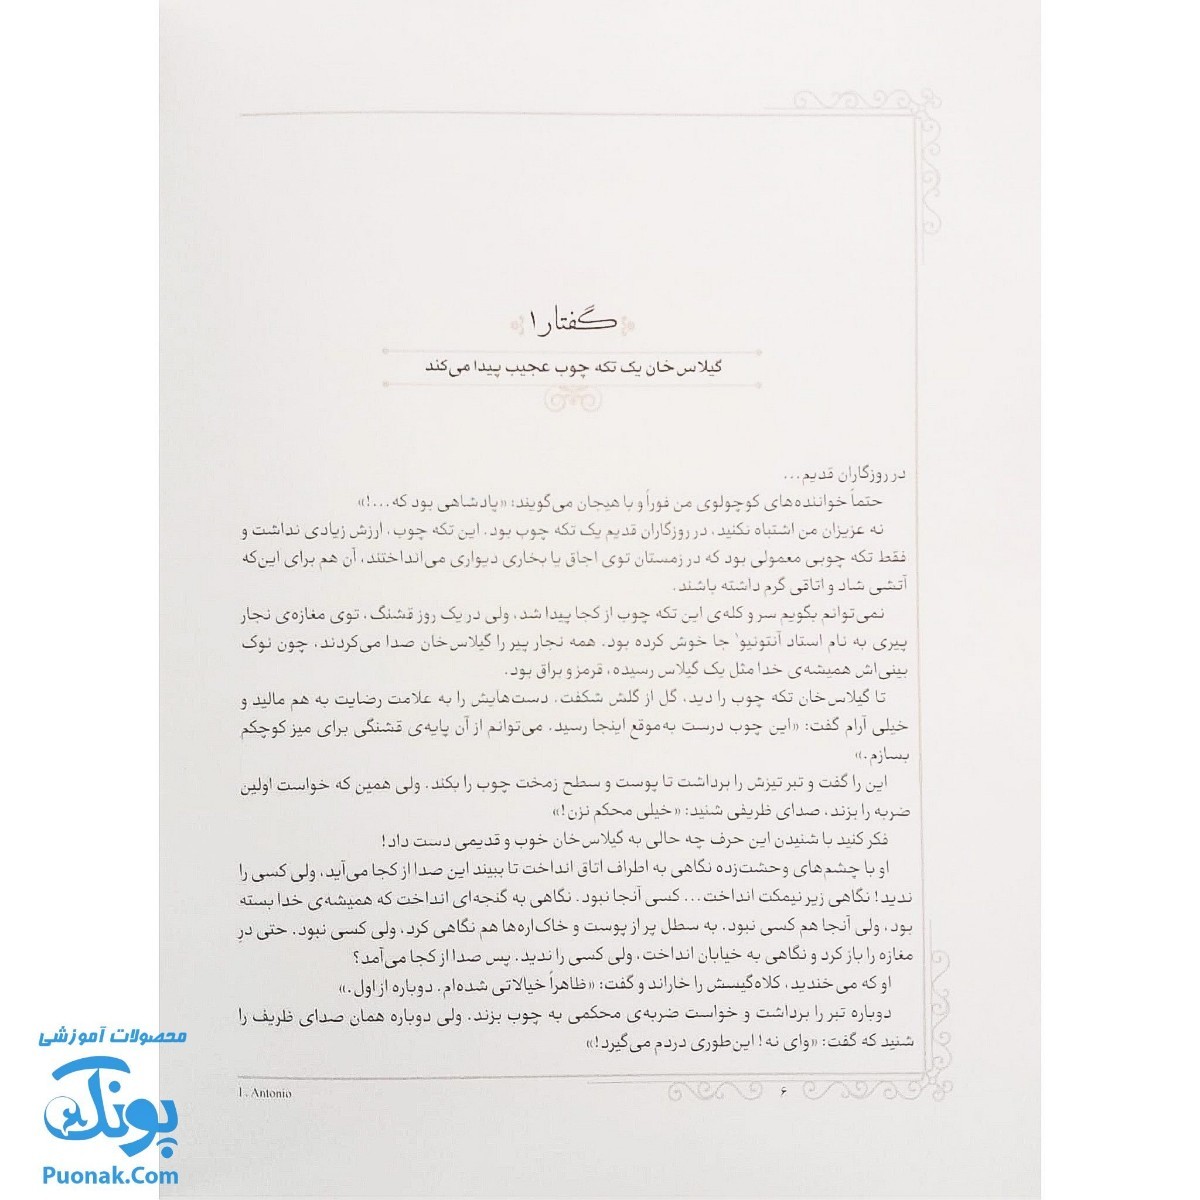 گفتار ۱
گیلاس‌خان یک تکه چوب عجیب پیدا می‌کند
در روزگاران قدیم...
حتماً خواننده‌های کوچولوی من فوراً و با هیجان می‌گویند: «پادشاهی بود که...!»
نه عزیزان من اشتباه نکنید، در روزگاران قدیم یک تکه چوب بود. این تکه چوب، ارزش زیادی نداشت و
فقط تکه چوبی معمولی بود که در زمستان توی اجاق یا بخاری دیواری می‌انداختند، آن هم برای این‌که
آتشی شاد و اتاقی گرم داشته باشند.
نمی‌توانم بگویم سر و کله‌ی این تکه چوب از کجا پیدا شد، ولی در یک روز قشنگ، توی مغازه‌ی نجار
پیری به نام استاد آنتونیو۱ جا خوش کرده بود. همه نجار پیر را گیلاس‌خان صدا می‌کردند، چون نوک
بینی‌اش همیشه‌ی خدا مثل یک گیلاس رسیده، قرمز و براق بود.
تا گیلاس‌خان تکه چوب را دید، گل از گلش شکفت. دست‌هایش را به علامت رضایت به هم مالید و
خیلی آرام گفت: «این چوب درست به‌موقع اینجا رسید. می‌توانم از آن پایه‌ی قشنگی برای میز کوچکم
بسازم.»
این را گفت و تبر تیزش را برداشت تا پوست و سطح زمخت چوب را بکند. ولی همین که خواست اولین
ضربه را بزند، صدای ظریفی شنید: «خیلی محکم نزن!»
فکر کنید با شنیدن این حرف چه حالی به گیلاس‌خان خوب و قدیمی دست داد!
او با چشم‌های وحشت‌زده نگاهی به اطراف اتاق انداخت تا ببیند این صدا از کجا می‌آید، ولی کسی را
ندید! نگاهی زیر نیمکت انداخت... کسی آنجا نبود. نگاهی به گنجه‌ای انداخت که همیشه‌ی خدا بسته
بود، ولی آنجا هم کسی نبود. به سطل پر از پوست و خاک‌اره‌ها هم نگاهی کرد، ولی کسی نبود. حتی درِ
مغازه را باز کرد و نگاهی به خیابان انداخت، ولی کسی را ندید. پس صدا از کجا می‌آمد؟
او که می‌خندید، کلاه‌گیسش را خاراند و گفت: «ظاهراً خیالاتی شده‌ام. دوباره از اول.»
دوباره تبر را برداشت و خواست ضربه‌ی محکمی به چوب بزند. ولی دوباره همان صدای ظریف را
شنید که گفت: «وای نه! این‌طوری دردم می‌گیرد!»
1. Antonio
۶
محصولات آموزشی
پونک
Puonak.Com